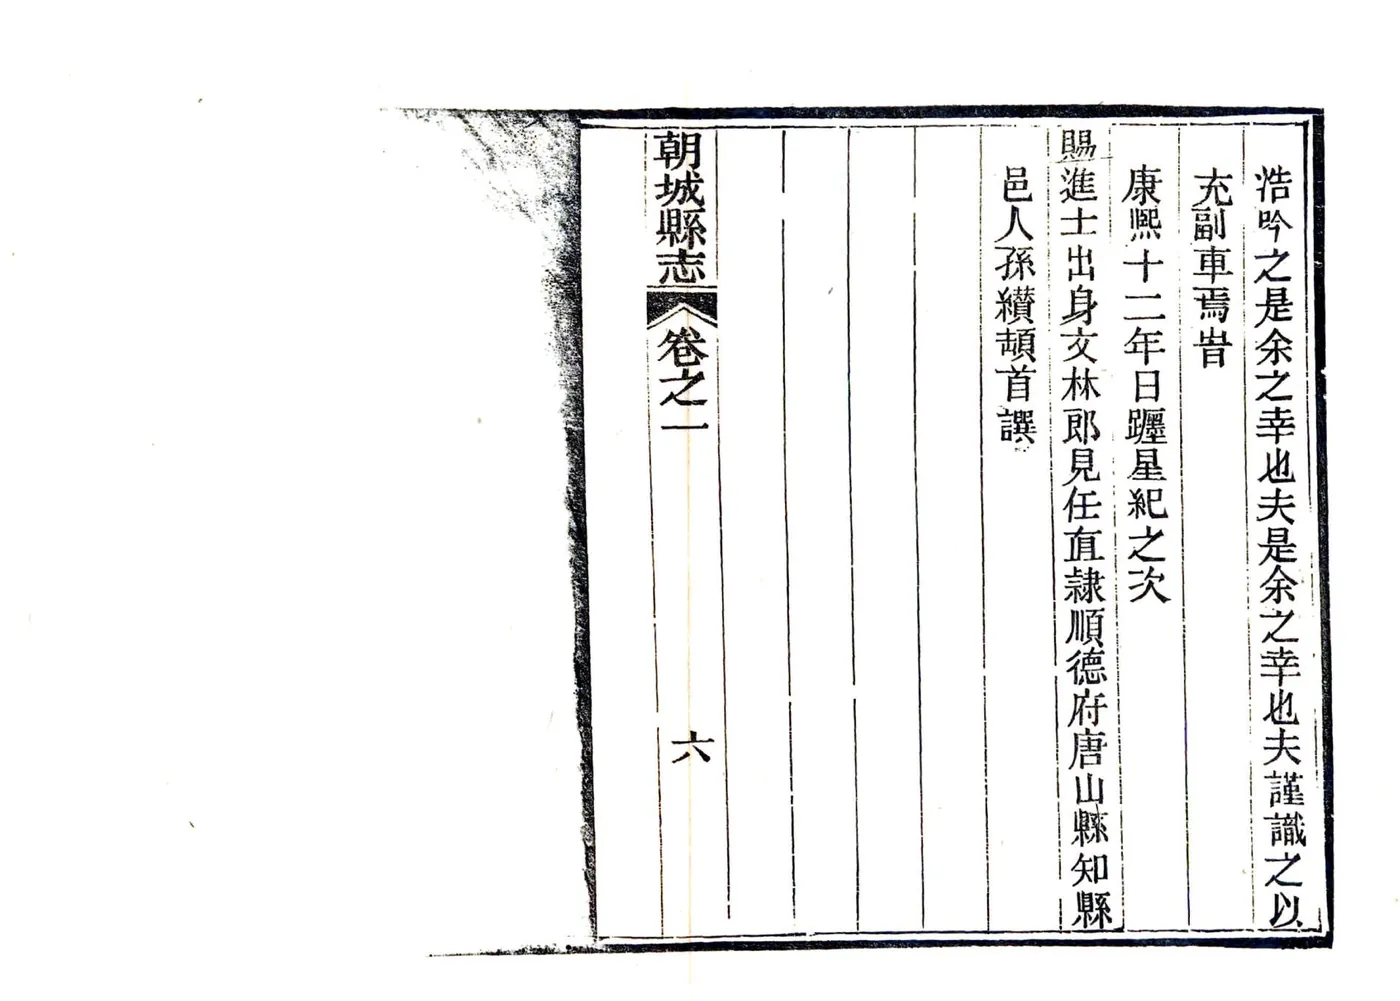 浩吟之是余之幸也夫是余之幸也夫謹識之以
充副車焉旹
康熙十二年日躔星紀之次
賜進士出身文林郎見任直隸順德府唐山縣知縣
邑人孫纘頓首譔
朝城縣志 卷之一 六